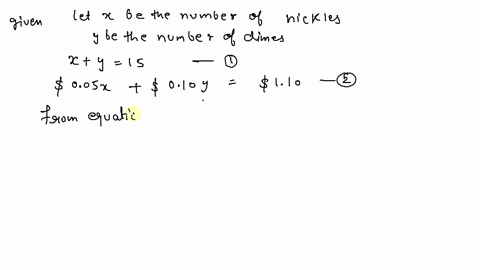 given let x be the number of nickles
y be the number of dimes
x + y = 15 — ①
$ 0.05x + $ 0.10y = $ 1.10 — ②
from equatic